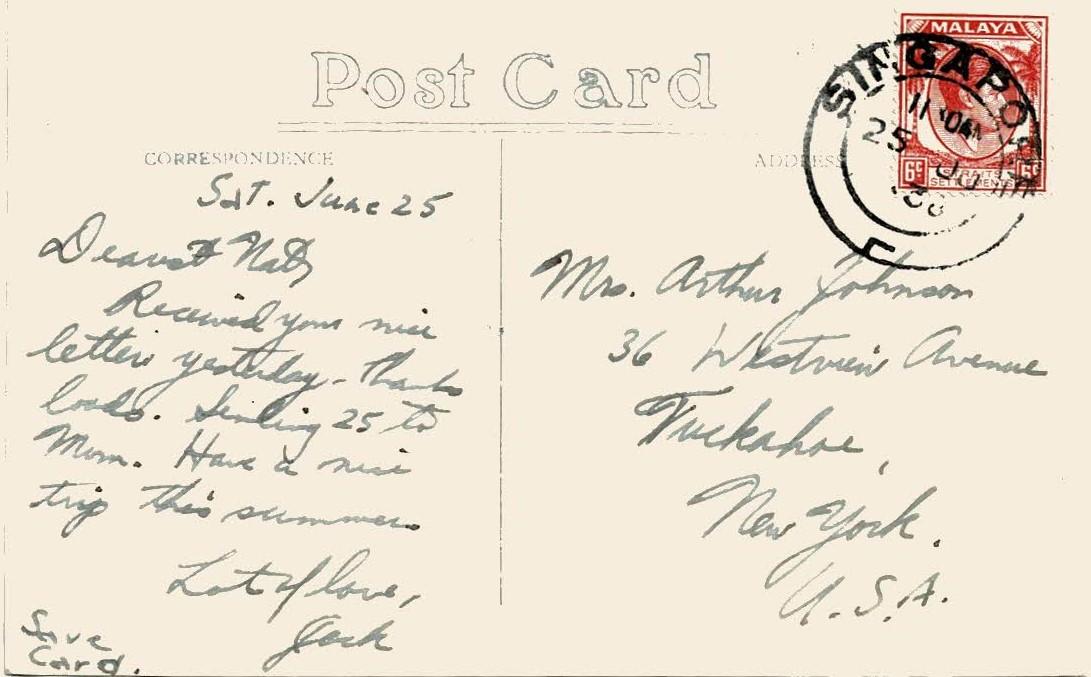 Post Card
CORRESPONDENCE
ADDRESS
MALAYA
SINGAPORE
11 30AM
25 JU
38
6c 6c
STRAITS
SETTLEMENTS
Sat. June 25
Dearest Nat,
Received your nice
letter yesterday - thanks
loads. Sending 25 to
Mom. Have a nice
trip this summer.
Lots of love,
Jack
Save
Card.
Mrs. Arthur Johnson
36 Westview Avenue
Tuckahoe,
New York.
U.S.A.